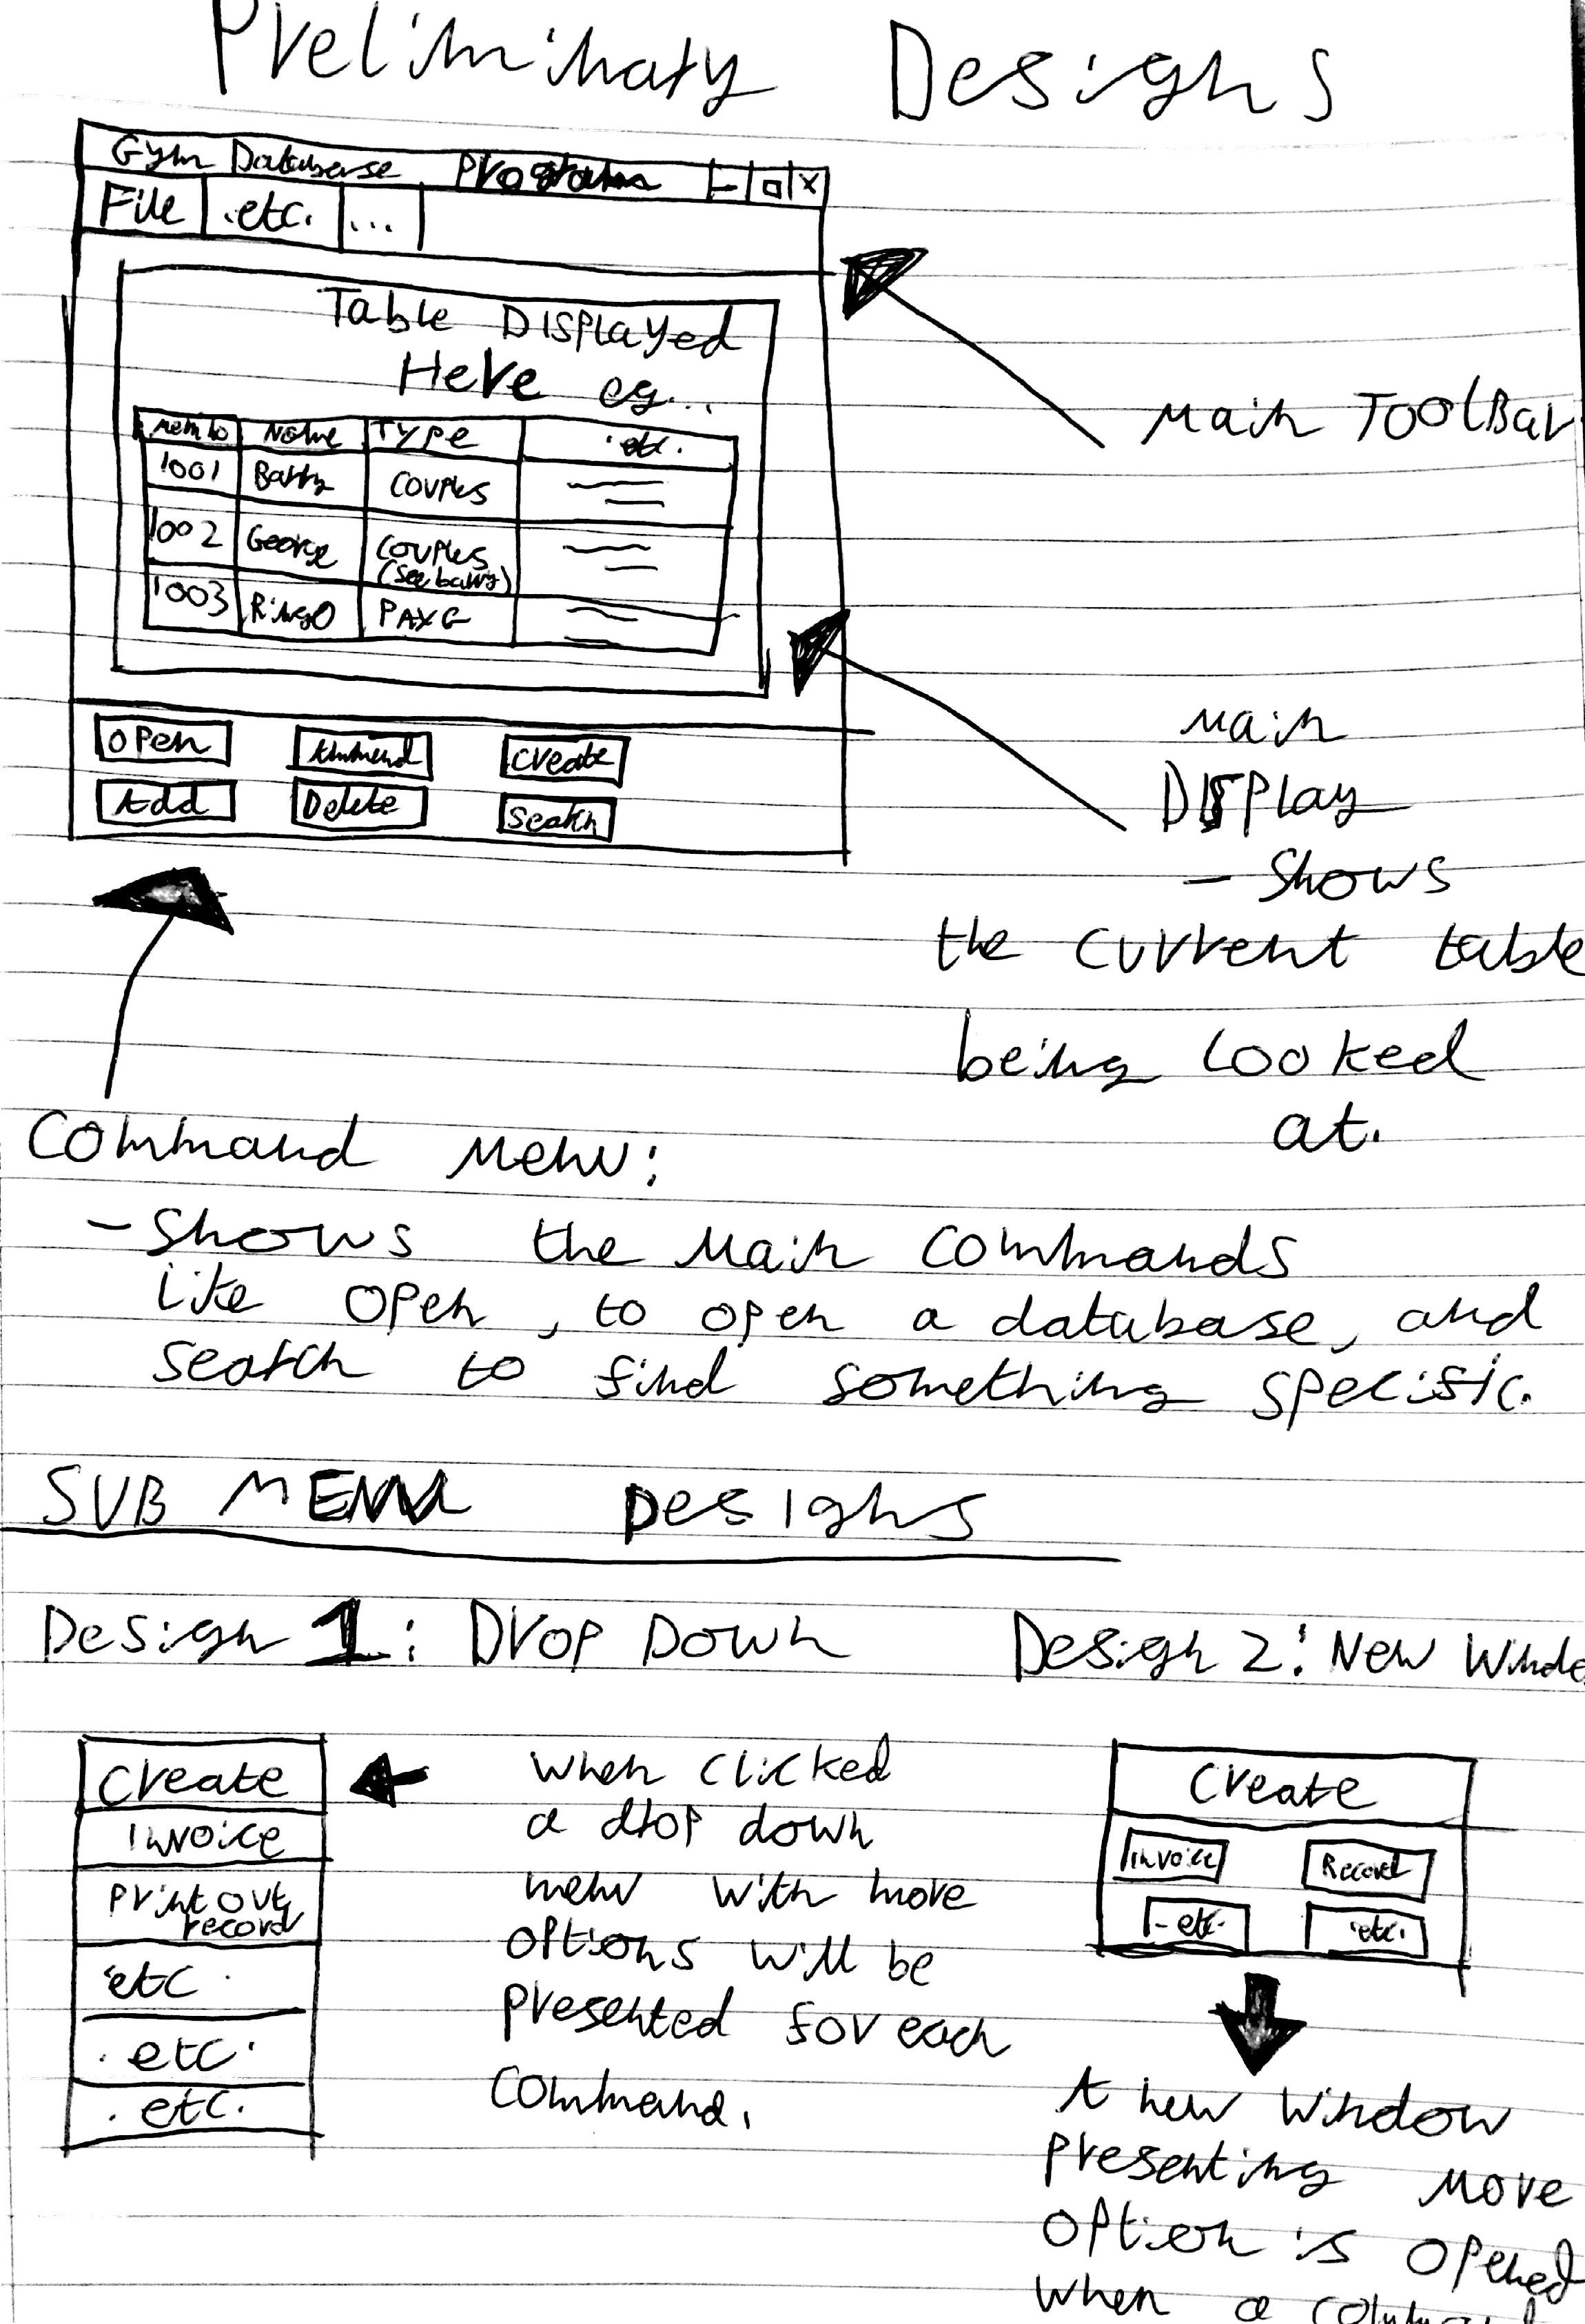 Preliminary Designs
Gym Database Program - □ x
File .etc. ...
Table Displayed
Here eg...
Name Type .etc.
1001 Barry Couples
1002 George Couples
(See barry)
1003 Ringo PAYG
Open Ammend Create
Add Delete Search
Main ToolBar
Main
Display
- Shows
the current table
being looked
at.
Command Menu:
- Shows the Main Commands
like open, to open a database, and
search to find something specific.
SUB MENU Designs
Design 1: Drop Down
Create
Invoice
Print out
record
etc.
.etc.
.etc.
When clicked
a drop down
menu with more
options will be
presented for each
command.
Design 2: New Windo
Create
Invoice Record
.etc. .etc.
A new window
presenting more
option is opened
when a comman